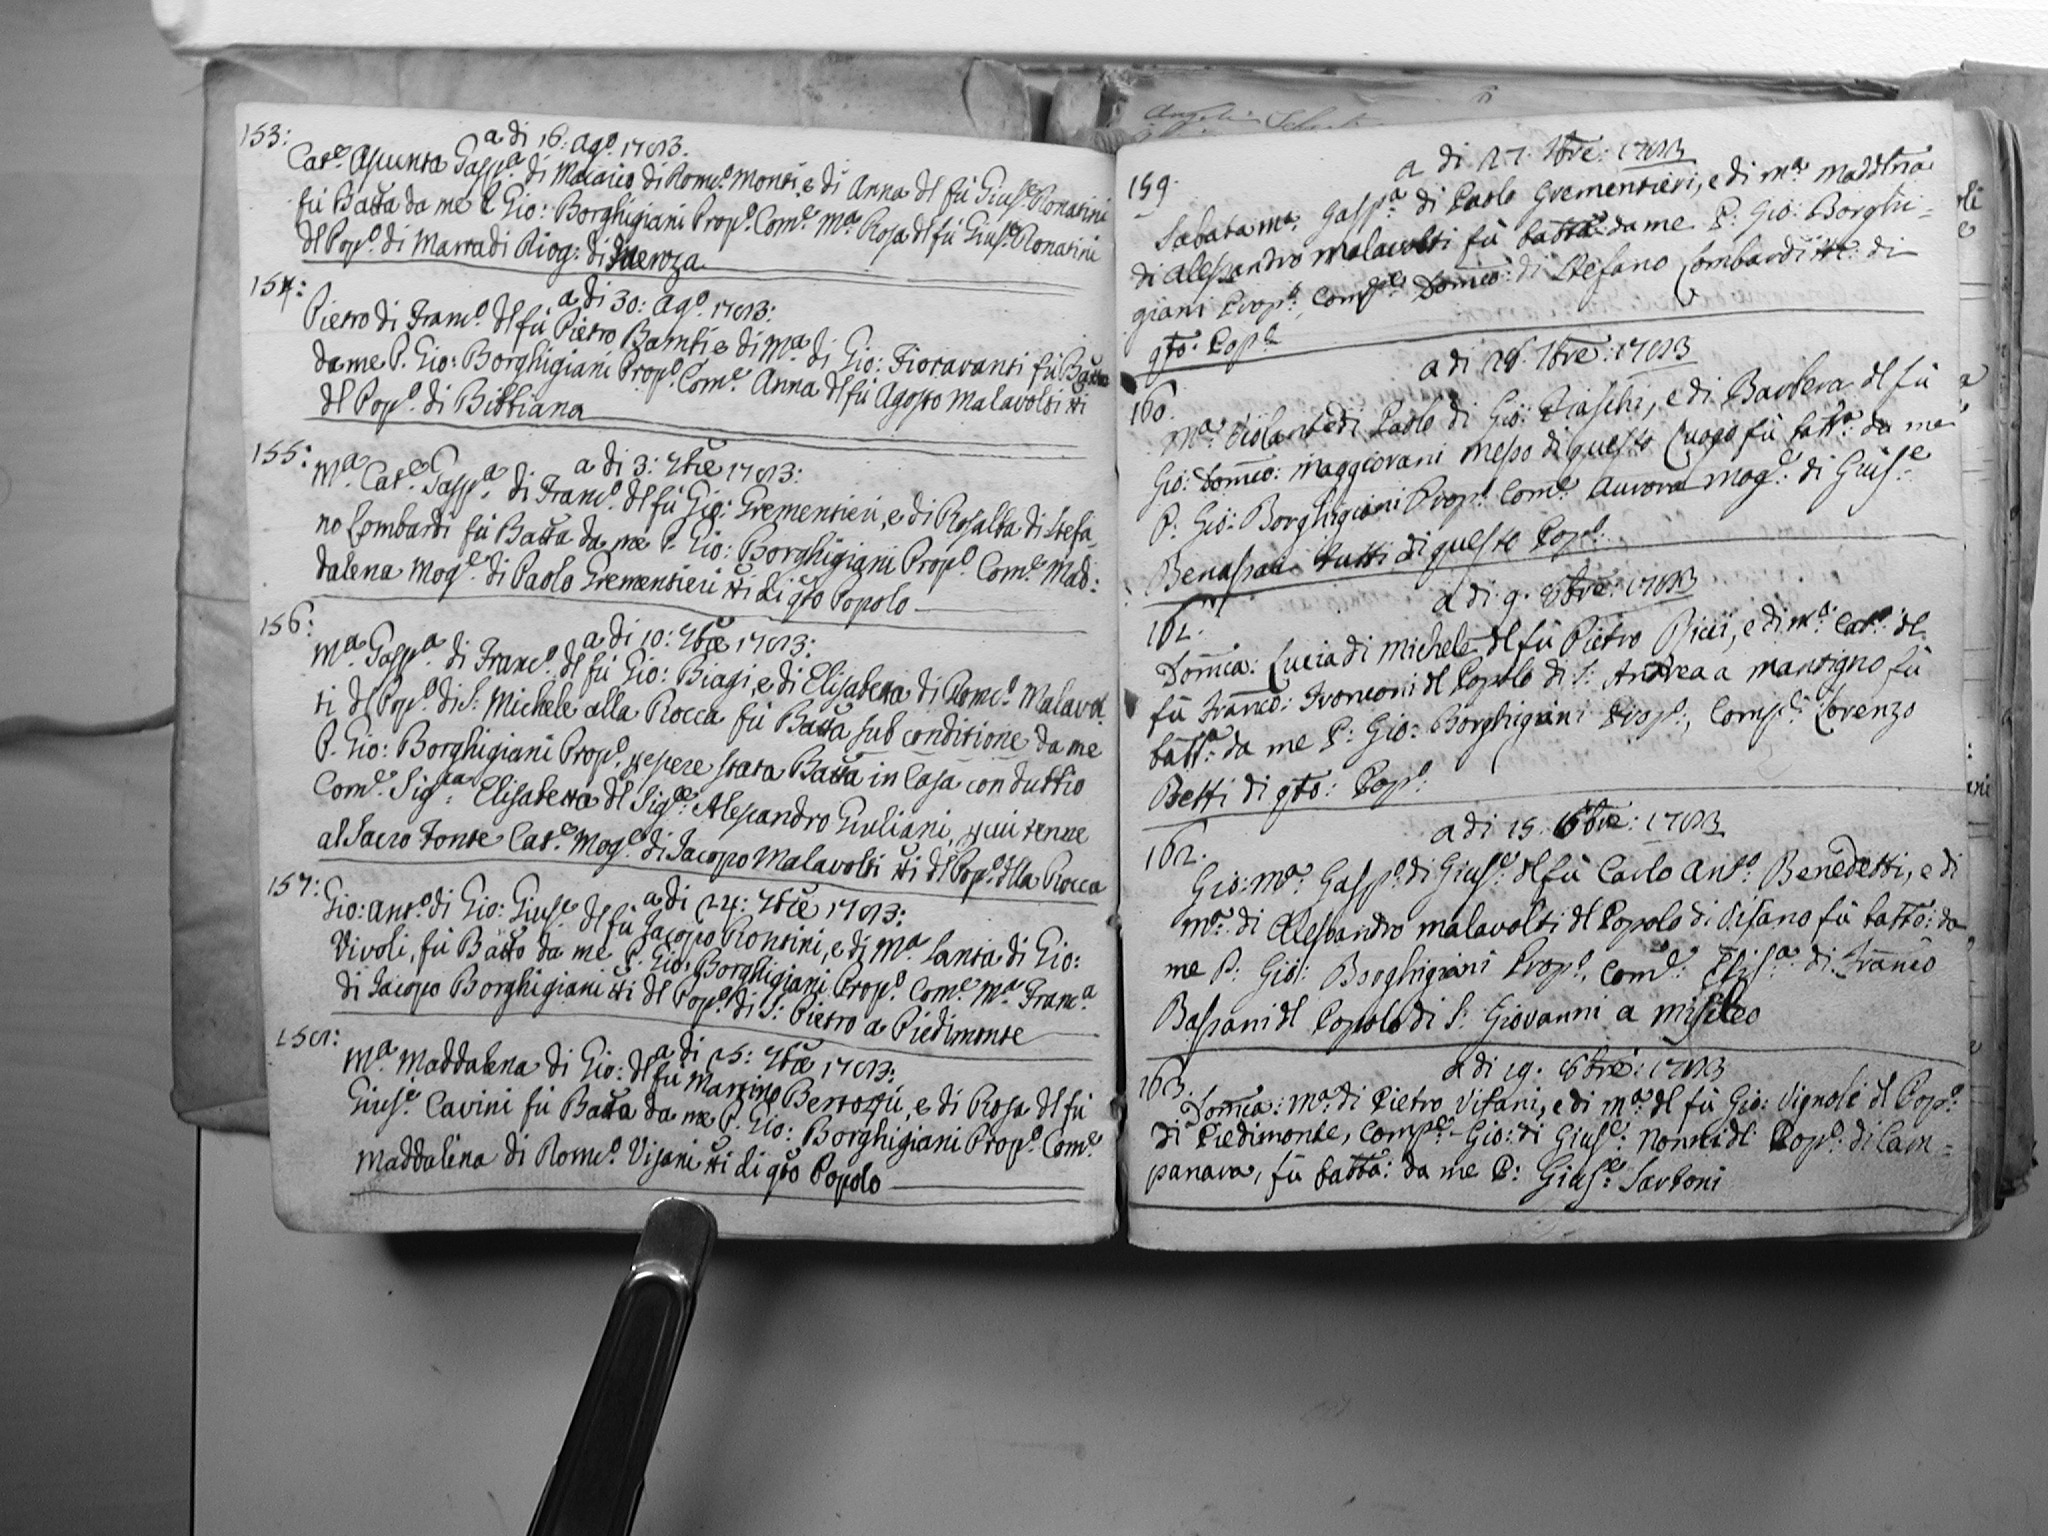 153:
a di 16: Ag.º 1783.
Cat.ª Assunta Gasp.ª di Matteo di Dom.co Monti, e di Anna dl fù Gius.e Ronatini
fù Batta da me P. Gio: Borghigiani Prop.º Com.e M.ª Rosa dl fù Gius.e Ronatini
dl Pop.º di Marradi Diog: di Faenza
154:
a di 30: Ag.º 1783:
Pietro di Franc.º dl fù Pietro Bamti e di M.ª di Gio: Fioravanti fù Batto
da me P. Gio: Borghigiani Prop.º Com.e Anna dl fù Agosto Malavolti tti
dl Pop.º di Bibbiana
155:
a di 3: 7bre 1783:
M.ª Cat.ª Gasp.ª di Franc.º dl fù Gio: Grementieri, e di Rosalba di Stefa
no Lombardi fù Batta da me P. Gio: Borghigiani Prop.º Com.e Mad:
dalena Mog.e di Paolo Grementieri tti di qto Popolo
156:
a di 10: 7bre 1783:
M.ª Gasp.ª di Franc.º dl fù Gio: Biagi, e di Elisabetta di Dom.co Malavol
ti dl Pop.º di S. Michele alla Rocca fù Batta sub conditione da me
P. Gio: Borghigiani Prop.º, p essere stata Batta in Casa con dubbio
Com.e Sig.ra Elisabetta dl Sig.re Alessandro Giuliani, p cui tenne
al Sacro Fonte Cat.ª Mog.e di Jacopo Malavolti tti dl Pop.º dlla Rocca
157:
a di 24: 7bre 1783:
Gio: Ant.º di Gio: Gius.e dl fù Jacopo Rontini, e di M.ª Santa di Gio:
Vivoli, fù Batto da me P. Gio: Borghigiani Prop.º Com.e M.ª Franc.ª
di Jacopo Borghigiani tti dl Pop.º di S: Pietro a Piedimonte
158:
a di 25: 7bre 1783:
M.ª Maddalena di Gio: dl fù Martino Bertozzi, e di Rosa dl fù
Gius.e Cavini fù Batta da me P. Gio: Borghigiani Prop.º Com.e
Maddalena di Dom.co Visani tti di qto Popolo
a di 27. 7bre: 1783
159.
Sabata M.ª Gasp.ª di Paolo Grementieri, e di M.ª Maddlna
di Alessandro Malavolti fù batta: da me P: Gio: Borghi=
giani Prop.º, Comp.e Domco: di Stefano Lombardi tti: di
qto: Pop.º
a di 28. 7bre: 1783
160.
M.ª Violante di Paolo di Gio: Fiaschi, e di Barbera dl fù
Gio: Domco: Maggiovani Messo di questo Luogo fù batt.ª: da me
P: Gio: Borghigiani Prop.º Com.e Aurora Mog.e: di Gius.e
Benassai tutti di questo Pop.º:
a di 9. 8bre: 1783
161.
Domca: Lucia di Michele dl fù Pietro Ricci, e di M.ª: Cat.ª: dl
fù Franco: Fronconi dl Popolo di S: Andrea a Mantigno fù
batt.ª: da me P: Gio: Borghigiani Prop.º, Comp.e: Lorenzo
Betti di qto: Pop.º:
a di 15. 8bre: 1783
162.
Gio: M.ª: Gasp.º: di Gius.e dl fù Carlo Ant.º: Benedetti, e di
M.ª: di Alessandro Malavolti dl Popolo di Visano fù batto: da
me P: Gio: Borghigiani Prop.º, Com.e: Elis.ª: di Franco
Bassani dl Popolo di S: Giovanni a Misileo
a di 19. 8bre: 1783
163.
Domca: M.ª: di Pietro Visani, e di M.ª: dl fù Gio: Vignoli dl Pop.º:
di Piedimonte, Comp.e: Gio: di Gius.e: Nonni dl: Pop.º: di Cam=
panara, fù batta: da me P: Gius.e: Sartoni